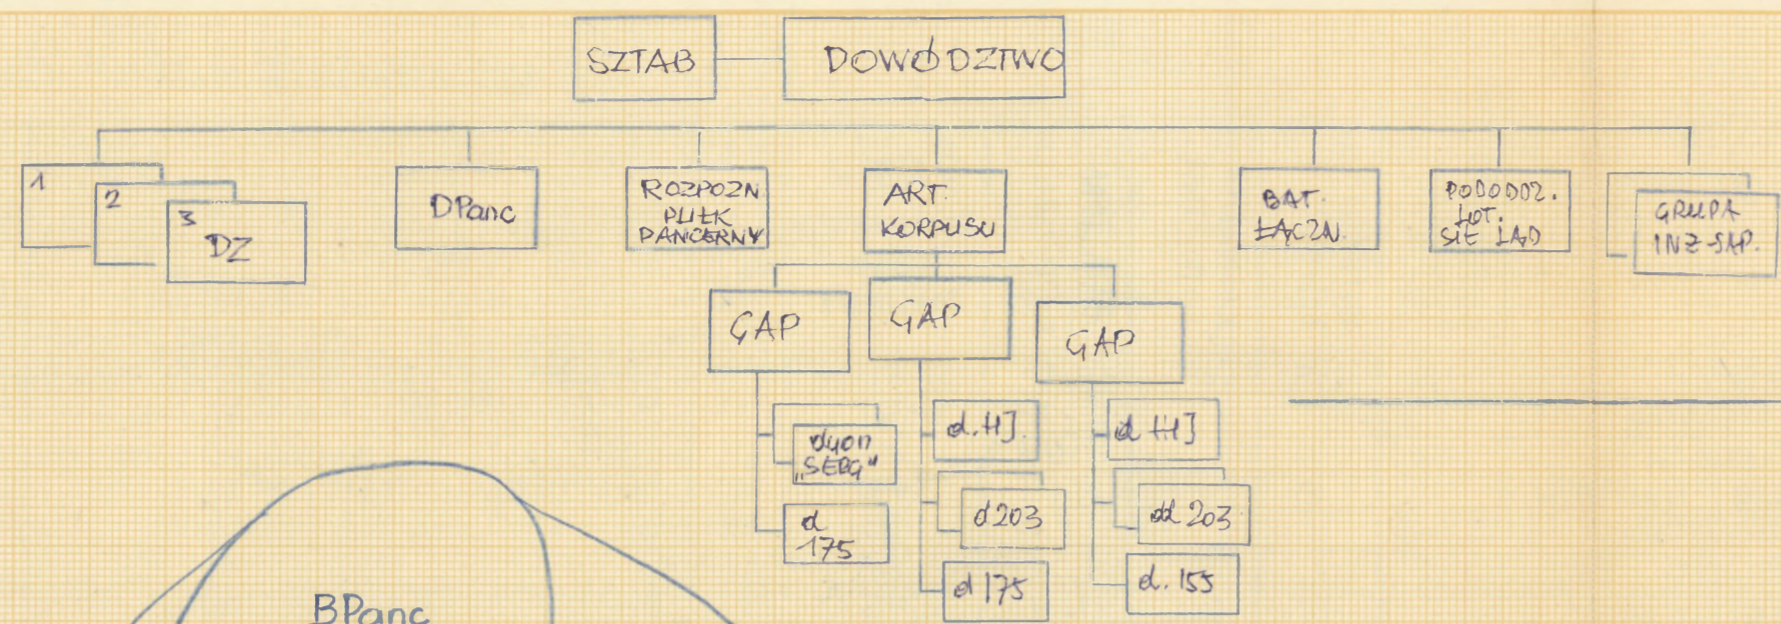 SZTAB
DOWÓDZTWO
1
2
3
DZ
DPanc
ROZPOZN
PUŁK
PANCERNY
ART.
KORPUSU
BAT.
ŁĄCZN.
PODODDZ.
LOT.
SIŁ LĄD
GRUPA
INŻ-SAP.
GAP
GAP
GAP
dyon
„SERG"
d
175
d. HJ.
d 203
d 175
d HJ
dd 203
d. 155
BPanc